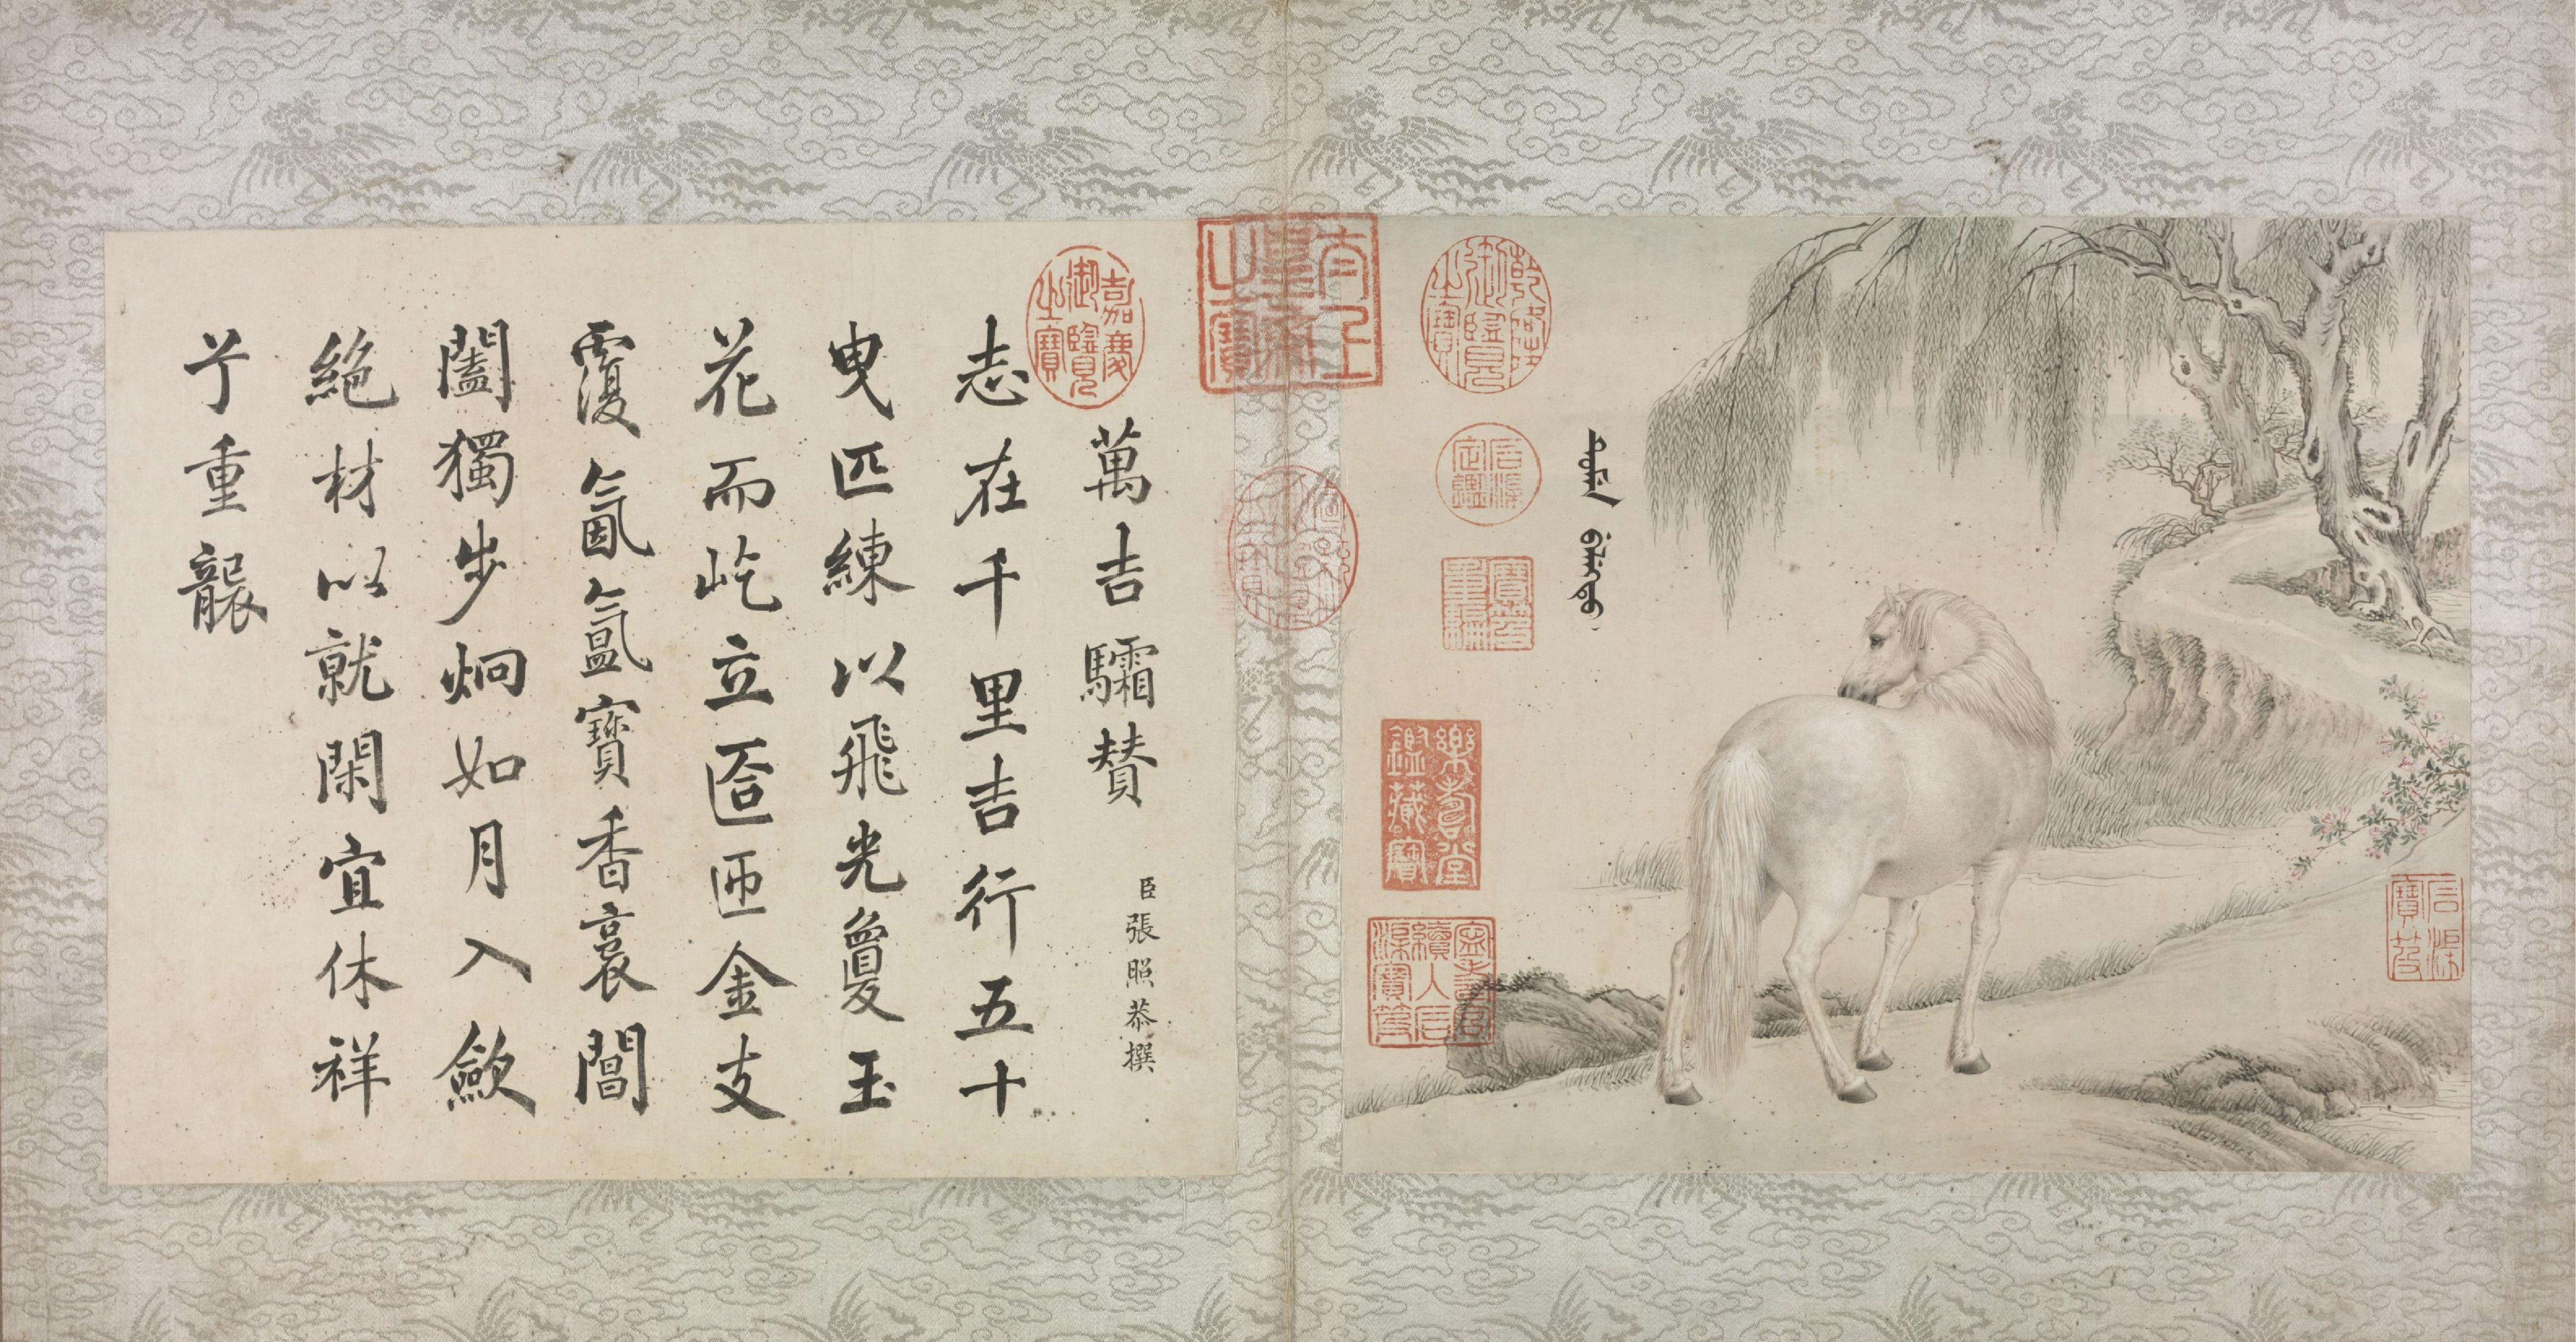 石渠寶笈
乾隆御覽之寶
石渠定鑑
寶笈重編
樂壽堂鑑藏寶
寧壽宮續入石渠寶笈
太上皇帝之寶
嘉慶御覽之寶
萬吉驦賛
臣張照恭撰
志在千里吉行五十
曳匹練以飛光敻玉
花而屹立匼匝金支
覆氤氳寶香裛閶
闔獨步炯如月入歛
絕材以就閑宜休祥
兮重襲